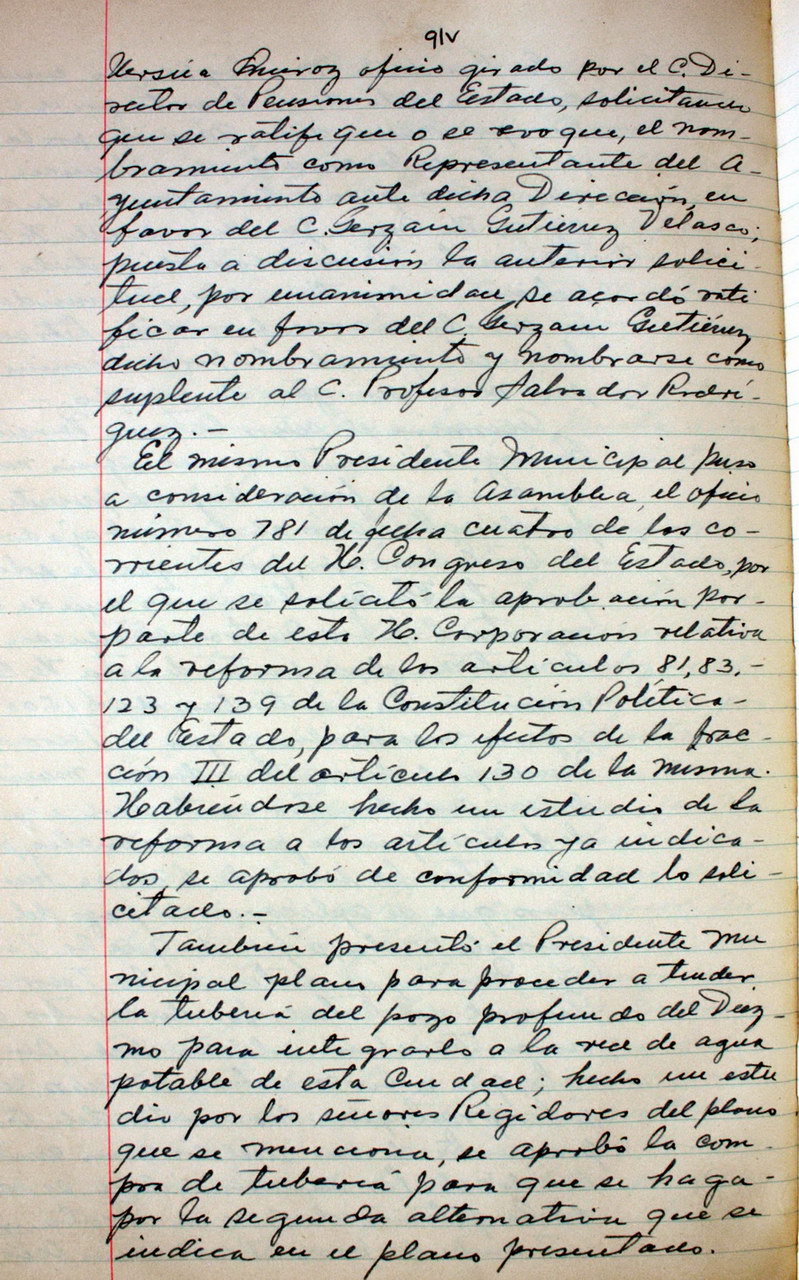 91v
oficio girado por el C. Di-
rector de Pensiones del Estado, solicitando
que se ratifique o se revoque, el nom-
bramiento como Representante del A-
yuntamiento ante dicha Dirección, en
favor del C. Gerzaín Gutiérrez Velasco;
puesta a discusión la anterior solici-
tud, por unanimidad, se acordó rati
ficar en favor del C. Gerzain Gutiérrez
dicho nombramiento y nombrarse como
suplente al C. Profesor Salvador Rodrí-
guez.-
El mismo Presidente Municipal puso
a consideración de la Asamblea, el oficio
número 781 de fecha cuatro de los co-
rrientes del H. Congreso del Estado, por
el que se solicitó la aprobación por-
parte de esta H. Corporación relativa
a la reforma de los artículos 81, 83,-
123 y 139 de la Constitución Política-
del Estado, para los efectos de la frac-
ción III del artículo 130 de la misma.
Habiéndose hecho un estudio de la
reforma a los artículos ya indica-
dos, se aprobó de conformidad lo soli-
citado.-
También presentó el Presidente Mu
nicipal plano para proceder a tender
la tubería del pozo profundo del Diez-
mo para integrarlo a la red de agua
potable de esta Ciudad; hecho un estu
dio por los señores Regidores del plano
que se menciona, se aprobó la com-
pra de tubería para que se haga-
por la segunda alternativa que se
indica en el plano presentado.